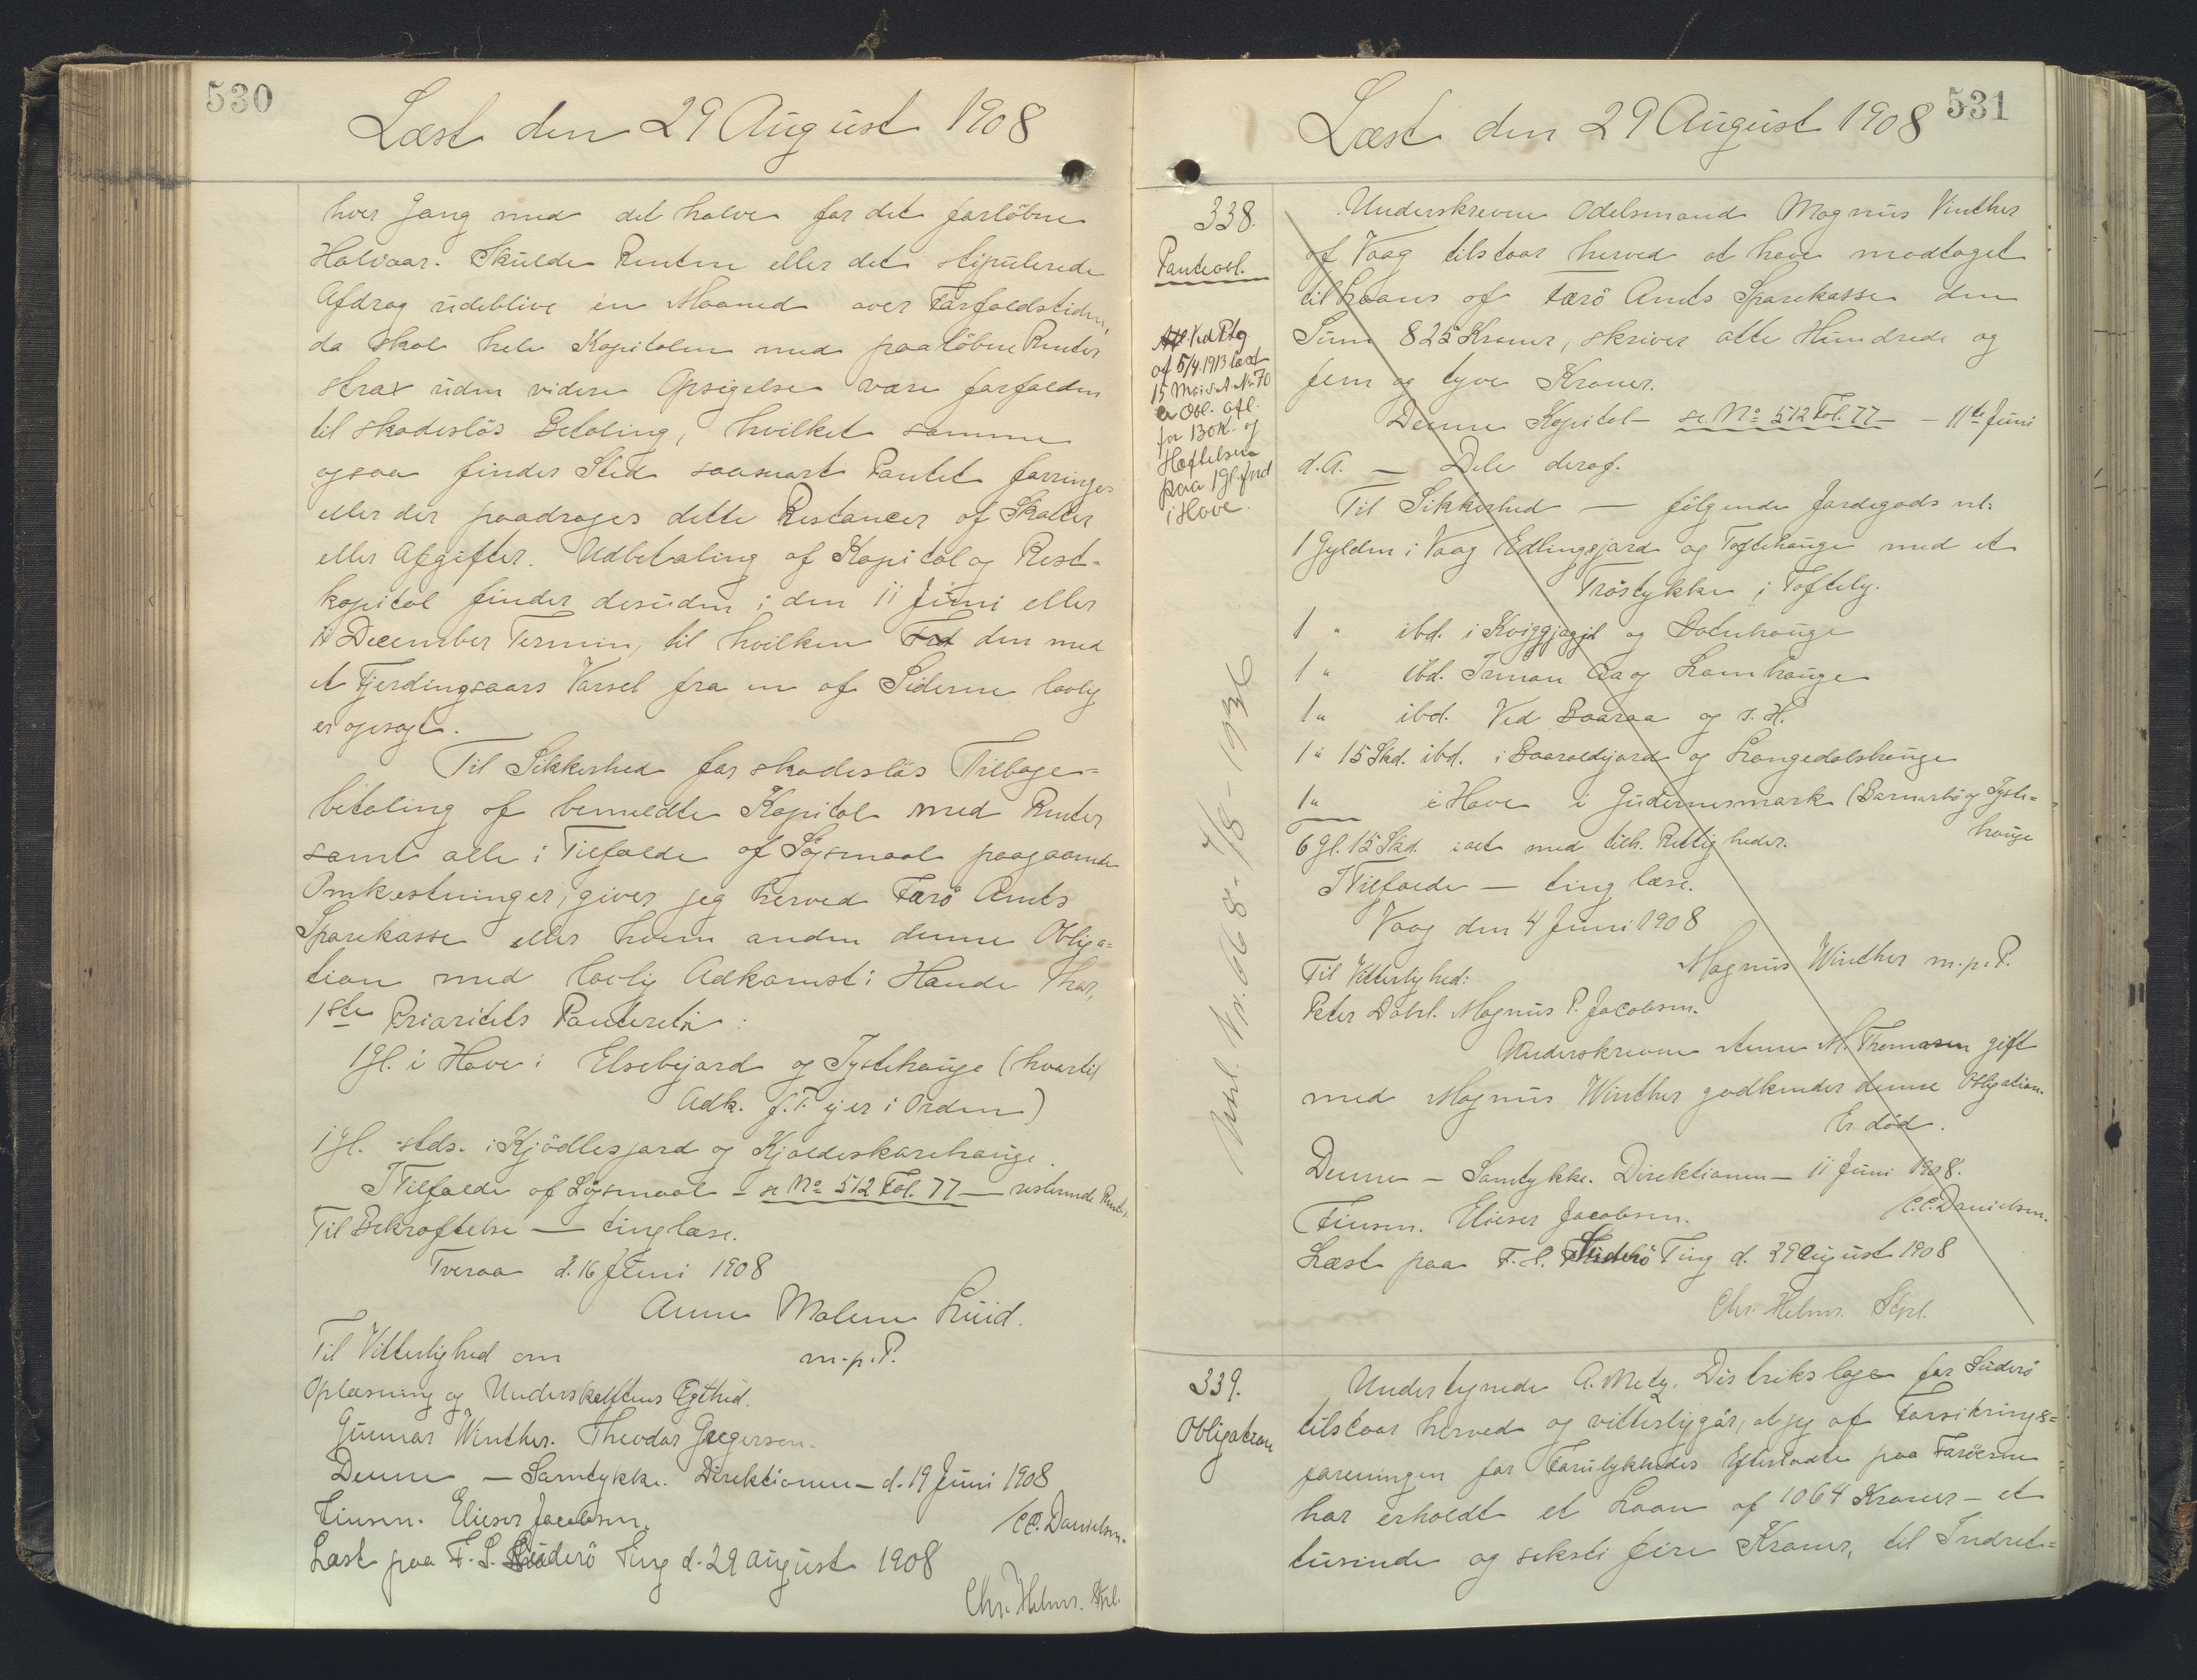 530
Læst den 29 August 1908
hver Gang med det halve for det forløbne
Halvaar. Skulde Renten eller det stipulerede
Afdrag udeblive én Maaned over Forfaldstiden,
da skal hele Kapitalen med paaløbne Renter
strax uden videre Opsigelse være forfalden
til skadesløs Betaling, hvilket samme
ogsaa finder Sted saasnart Pantet forringes
eller der paadrages dette Restancer af Skatter
eller Afgifter. Udbetaling af Kapital og Rest-
kapital finder desuden i den 11 Juni eller
11 December Termin, til hvilken Tid den med
et Fjerdingaars Varsel fra en af Siderne lovlig
er opsagt.
Til Sikkerhed for skadesløs Tilbage=
betaling af bemeldte Kapital med Renter
samt alle i Tilfælde af Søgsmaal paagaaende
Omkostninger, giver jeg herved Færø Amts
Sparekasse eller hvem anden denne Obliga=
tion med lovlig Adkomst i Hænde har,
1ste Prioritets Panteret i:
1 Gl. i Hove i Elsebjard og Tystehauge (hvortil
Adk. f.T. ej er i Orden)
1 Gl. stds. i Kjødlesjard og Kjaldeskarehauge.
I Tilfælde af Søgsmaal - se No 512 Fol. 77 - resterende Renter.
Til Bekræftelse — tinglæse.
Tveraa d. 16 Juni 1908
Anne Malene Luid.
m.p.P.
Til Vitterlighed om
Oplæsning og Underskriftens Ægthed.
Gunnar Winther. Theodor Gregersen.
Denne — Samtykke. Direktionen - d. 19 Juni 1908
Finsen. Elieser Jacobsen.
C.C. Danielsen.
Læst paa F. S. Suderø Ting d. 29 August 1908
Chr. Helms. Skrl.
531
Læst den 29 August 1908
338.
Panteobl.
Afl. Ved Ptg
af 5/4 1913 læst
15 Mai s.A. No 70
er Obl. afl.
for 130 K. og
Hæftelsen
paa 1 gl. Jord
i Hove.
Underskrevne Odelsmand Magnus Vinther
af Vaag tilstaar herved at have modtaget
til Laans af Færø Amts Sparekasse den
Sum 825 Kroner, skriver otte Hundrede og
fem og tyve Kroner.
Denne Kapital - se No 512 Fol. 77 - - 11te Juni
d.A. — Dele deraf.
Til Sikkerhed — følgende Jordegods nl:
1 Gylden i Vaag Edlingsjard og Toftehauge med et
Trøstykke i Toftely.
1 " ibd. i og
1 " ibd. og Lamhauge
1 " ibd. Ved Baaraa og s. H.
1 " 15 Skd. ibd. i og Langedalshauge
1 " i Hove i Gudernesmark (Barnarbø og Tyste=
hauge
6 Gl. 15 Skd. i alt med tilh. Rettigheder.
I Tilfælde — tinglæse.
Vaag den 4 Juni 1908
Magnus Winther m.p.P.
Til Vitterlighed:
Peter Dahl. Magnus P. Jacobsen.
Underskrevne Anne M. Thomasen gift
med Magnus Winther godkender denne Obligation.
Er død.
Denne — Samtykke. Direktionen — 11 Juni 1908.
Finsen. Elieser Jacobsen.
C.C. Danielsen.
Læst paa F. S. Suderø Ting d. 29 August 1908
Chr. Helms. Skrl.
Udsl. Nr. 668 - 4/8 - 1936
339.
Obligation
Undertegnede A. Metz, Distriktslæge for Suderø
tilstaar herved og vitterliggør, at jeg af Forsikrings=
foreningen for Forulykkedes Efterladte paa Færøerne
har erholdt et Laan af 1064 Kroner - et
tusinde og seksti fire Kroner, til Indret=